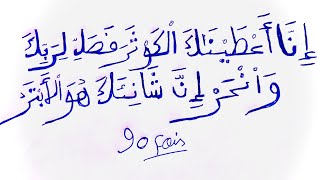 إِنَّا أَعْطَيْنَاكَ الْكَوْثَرَ فَصَلِّ لِرَبِّكَ
وَانْحَرْ إِنَّ شَانِئَكَ هُوَ الْأَبْتَرُ
90 fois